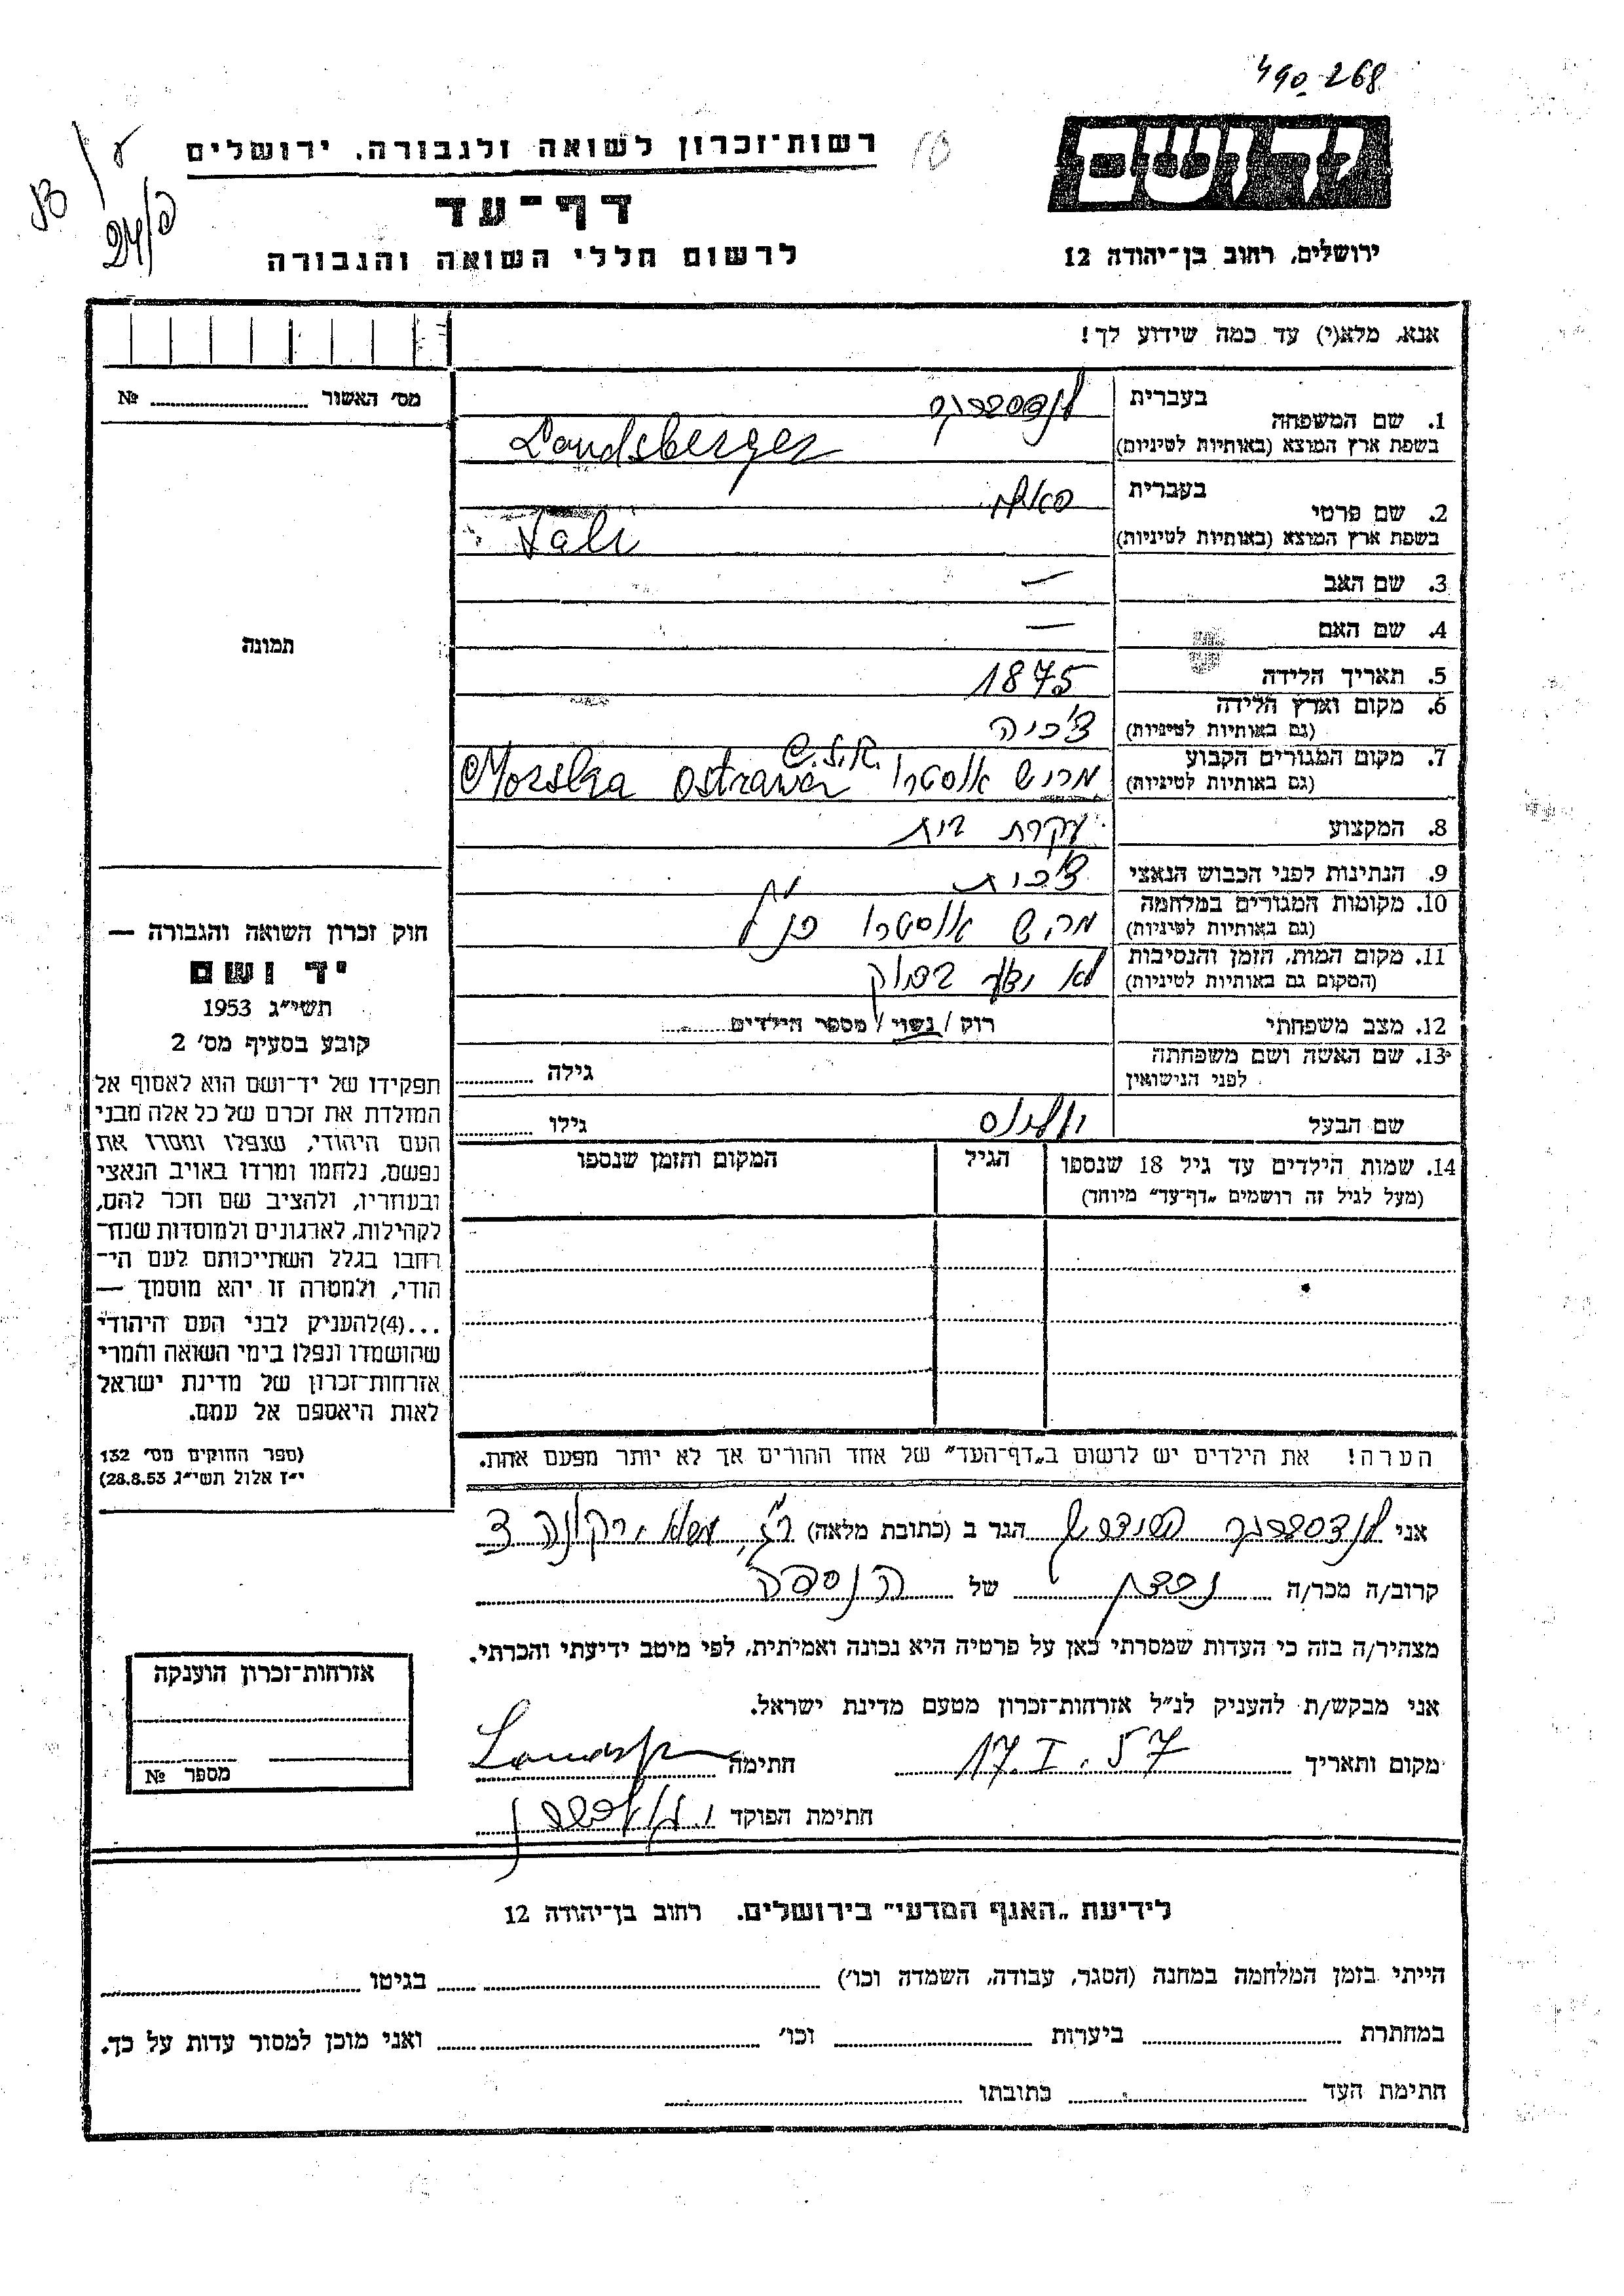 490268
רשות־זכרון לשואה ולגבורה, ירושלים
דף־עד
לרשום חללי השואה והגבורה
ירושלים, רחוב בן־יהודה 12
אנא, מלא(י) עד כמה שידוע לך!
מס׳ האשור № 
1. שם המשפחה
בעברית
בשפת ארץ המוצא (באותיות לטיניות)
Landsberger
2. שם פרטי
בעברית
בשפת ארץ המוצא (באותיות לטיניות)
3. שם האב —
4. שם האם —
תמונה
5. תאריך הלידה 1875
6. מקום וארץ הלידה
(גם באותיות לטיניות)
צ׳כיה
C.S.R.
7. מקום המגורים הקבוע
(גם באותיות לטיניות)
מריש אוסטרו Morska Ostrawa
8. המקצוע עקרת בית
9. הנתינות לפני הכבוש הנאצי צ׳כית
10. מקומות המגורים במלחמה
(גם באותיות לטיניות)
מריש אוסטרו
11. מקום המות, הזמן והנסיבות
(המקום גם באותיות לטיניות)
לא ידוע בדיוק
12. מצב משפחתי רוק / נשוי / מספר הילדים
13. שם האשה ושם משפחתה
לפני הנישואין
גילה
שם הבעל
גילו
14. שמות הילדים עד גיל 18 שנספו
(מעל לגיל זה רושמים „דף־עד״ מיוחד)
הגיל
המקום והזמן שנספו
חוק זכרון השואה והגבורה —
יד ושם
תשי״ג 1953
קובע בסעיף מס׳ 2
תפקידו של יד־ושם הוא לאסוף אל
המולדת את זכרם של כל אלה מבני
העם היהודי, שנפלו ומסרו את
נפשם, נלחמו ומרדו באויב הנאצי
ובעוזריו, ולהציב שם וזכר להם,
לקהילות, לארגונים ולמוסדות שנח־
רחבו בגלל השתייכותם לעם הי־
הודי, ולמטרה זו יהא מוסמך —
...(4)להעניק לבני העם היהודי
שהושמדו ונפלו בימי השואה והמרי
אזרחות־זכרון של מדינת ישראל
לאות היאספם אל עמם.
(ספר החוקים מס׳ 132
י״ז אלול תשי״ג 28.8.53)
הערה! את הילדים יש לרשום ב„דף־העד״ של אחד ההורים אך לא יותר מפעם אחת.
אני לנדסברגר הגר ב (כתובת מלאה)
קרוב/ה מכר/ה של הנספה
מצהיר/ה בזה כי העדות שמסרתי כאן על פרטיה היא נכונה ואמיתית, לפי מיטב ידיעתי והכרתי.
אני מבקש/ת להעניק לנ״ל אזרחות־זכרון מטעם מדינת ישראל.
מקום ותאריך 17.I.57 חתימה
חתימת הפוקד
אזרחות־זכרון הוענקה
מספר №
לידיעת „האגף המדעי״ בירושלים, רחוב בן־יהודה 12
הייתי בזמן המלחמה במחנה (הסגר, עבודה, השמדה וכו׳) בגיטו
במחתרת ביערות וכו׳ ואני מוכן למסור עדות על כך.
חתימת העד כתובתו